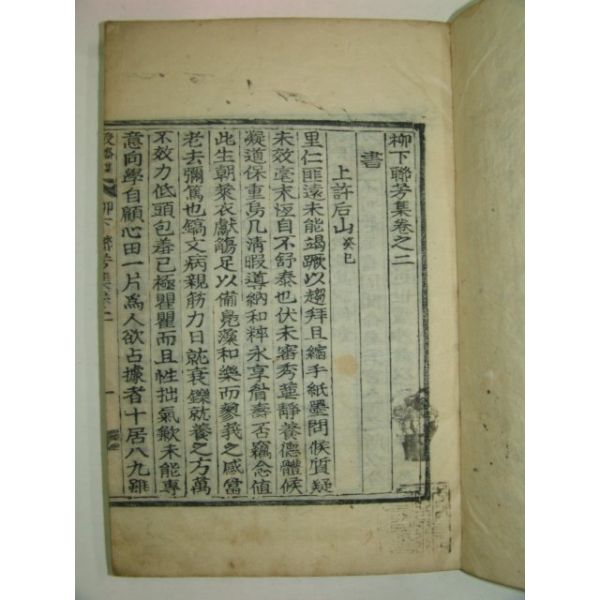 柳下聯芳集卷之二
書
上許后山 癸巳
里仁匪遠未能竭蹶以趨拜且縮手紙墨問候質疑
未效毫末恆自不舒泰也伏未審秀葽靜養德體候
凝道保重鳥几淸暇導納和粹永享耆壽否竊念値
此生朝萊衣獻觴足以備堯蓂和樂而蓼莪之感當
老去彌篤也鎬文病親筋力日就衰鑠就養之方萬
不效力低頭包羞已極瞿瞿而且性拙氣歉未能專
意向學自顧心田一片爲人欲占據者十居八九雖
柳下聯芳集卷二
一